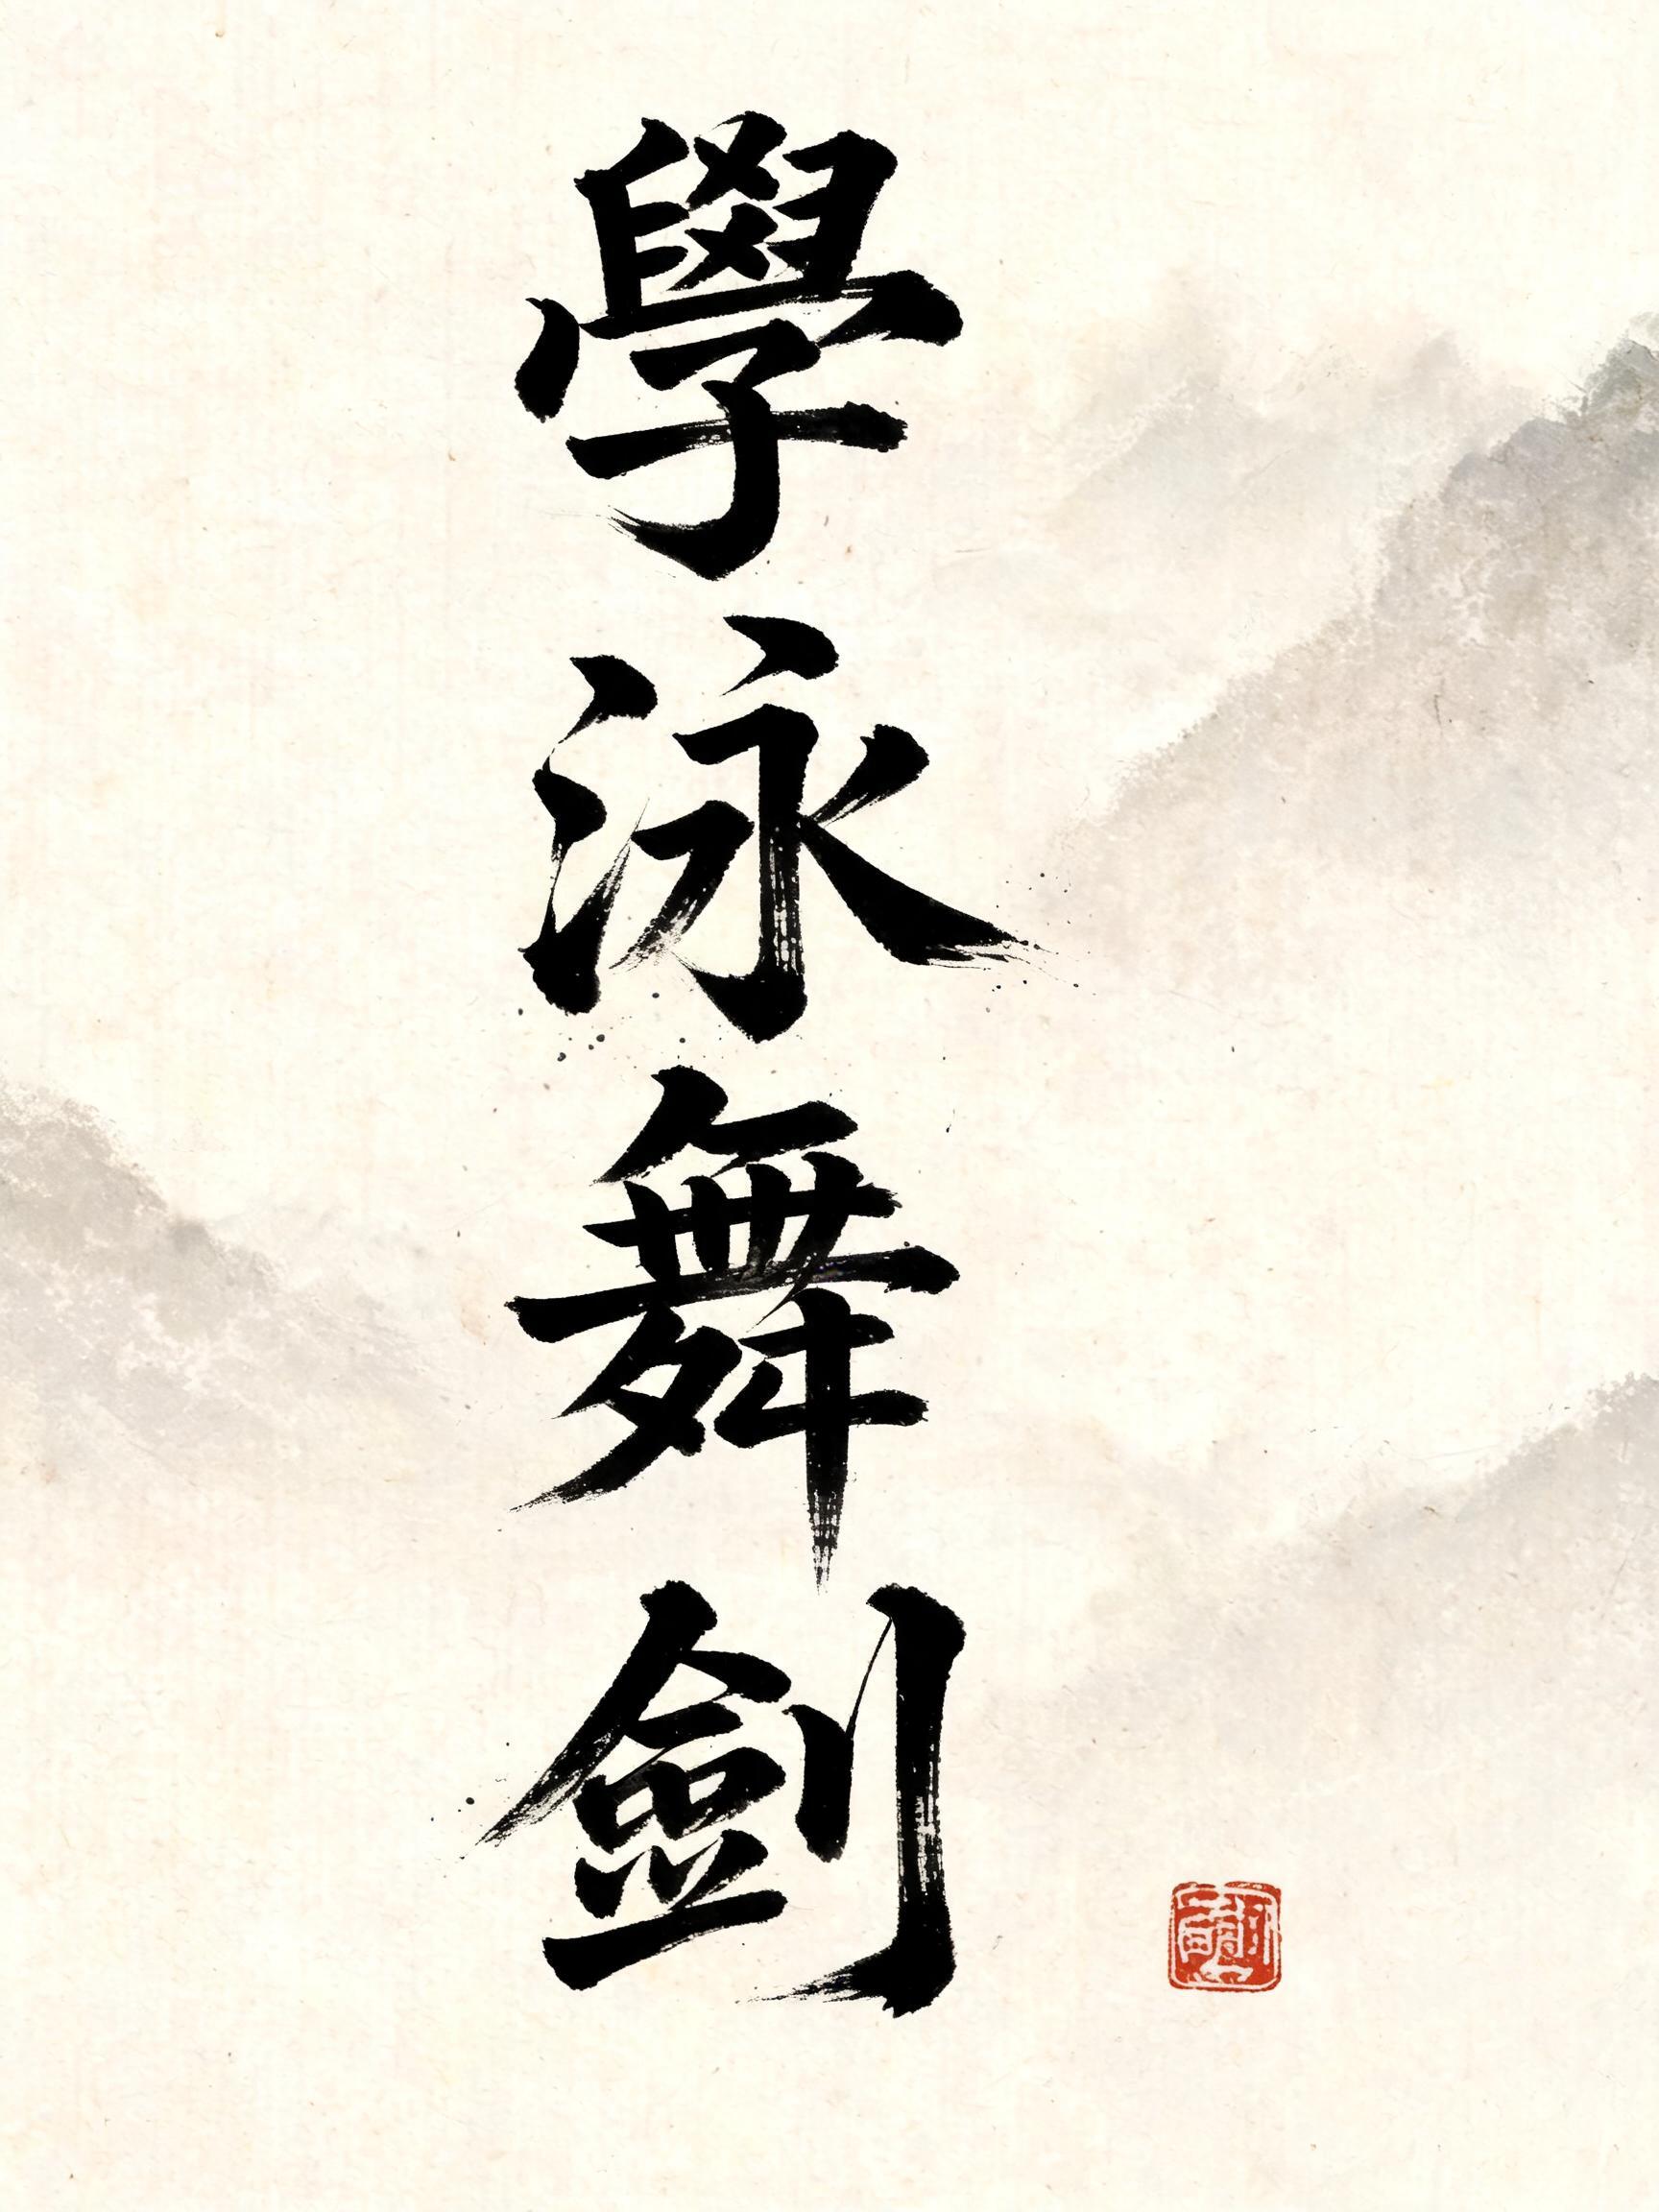 學泳舞劍